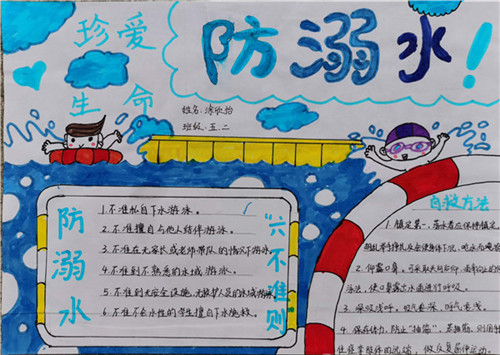 珍爱
生命
防溺水!
姓名:涂欣怡
班级:五.二
防溺水
1.不准私自下水游泳。
2.不准擅自与他人结伴游泳。
3.不准在无家长或老师带队的情况下游泳。
4.不准到不熟悉的水域游泳。
5.不准到无安全设施、无救护人员的水域游泳。
6.不准不会水性的学生擅自下水施救。
“六不准则
自救方法
1.镇定第一,落水者应保持镇定,
2.仰露口鼻,可采取
泳法,使口鼻露出水面进行呼吸。
3.深吸浅呼,吸气要深,呼气要浅。
4.保存体力,防止“抽筋”,若抽筋,则用